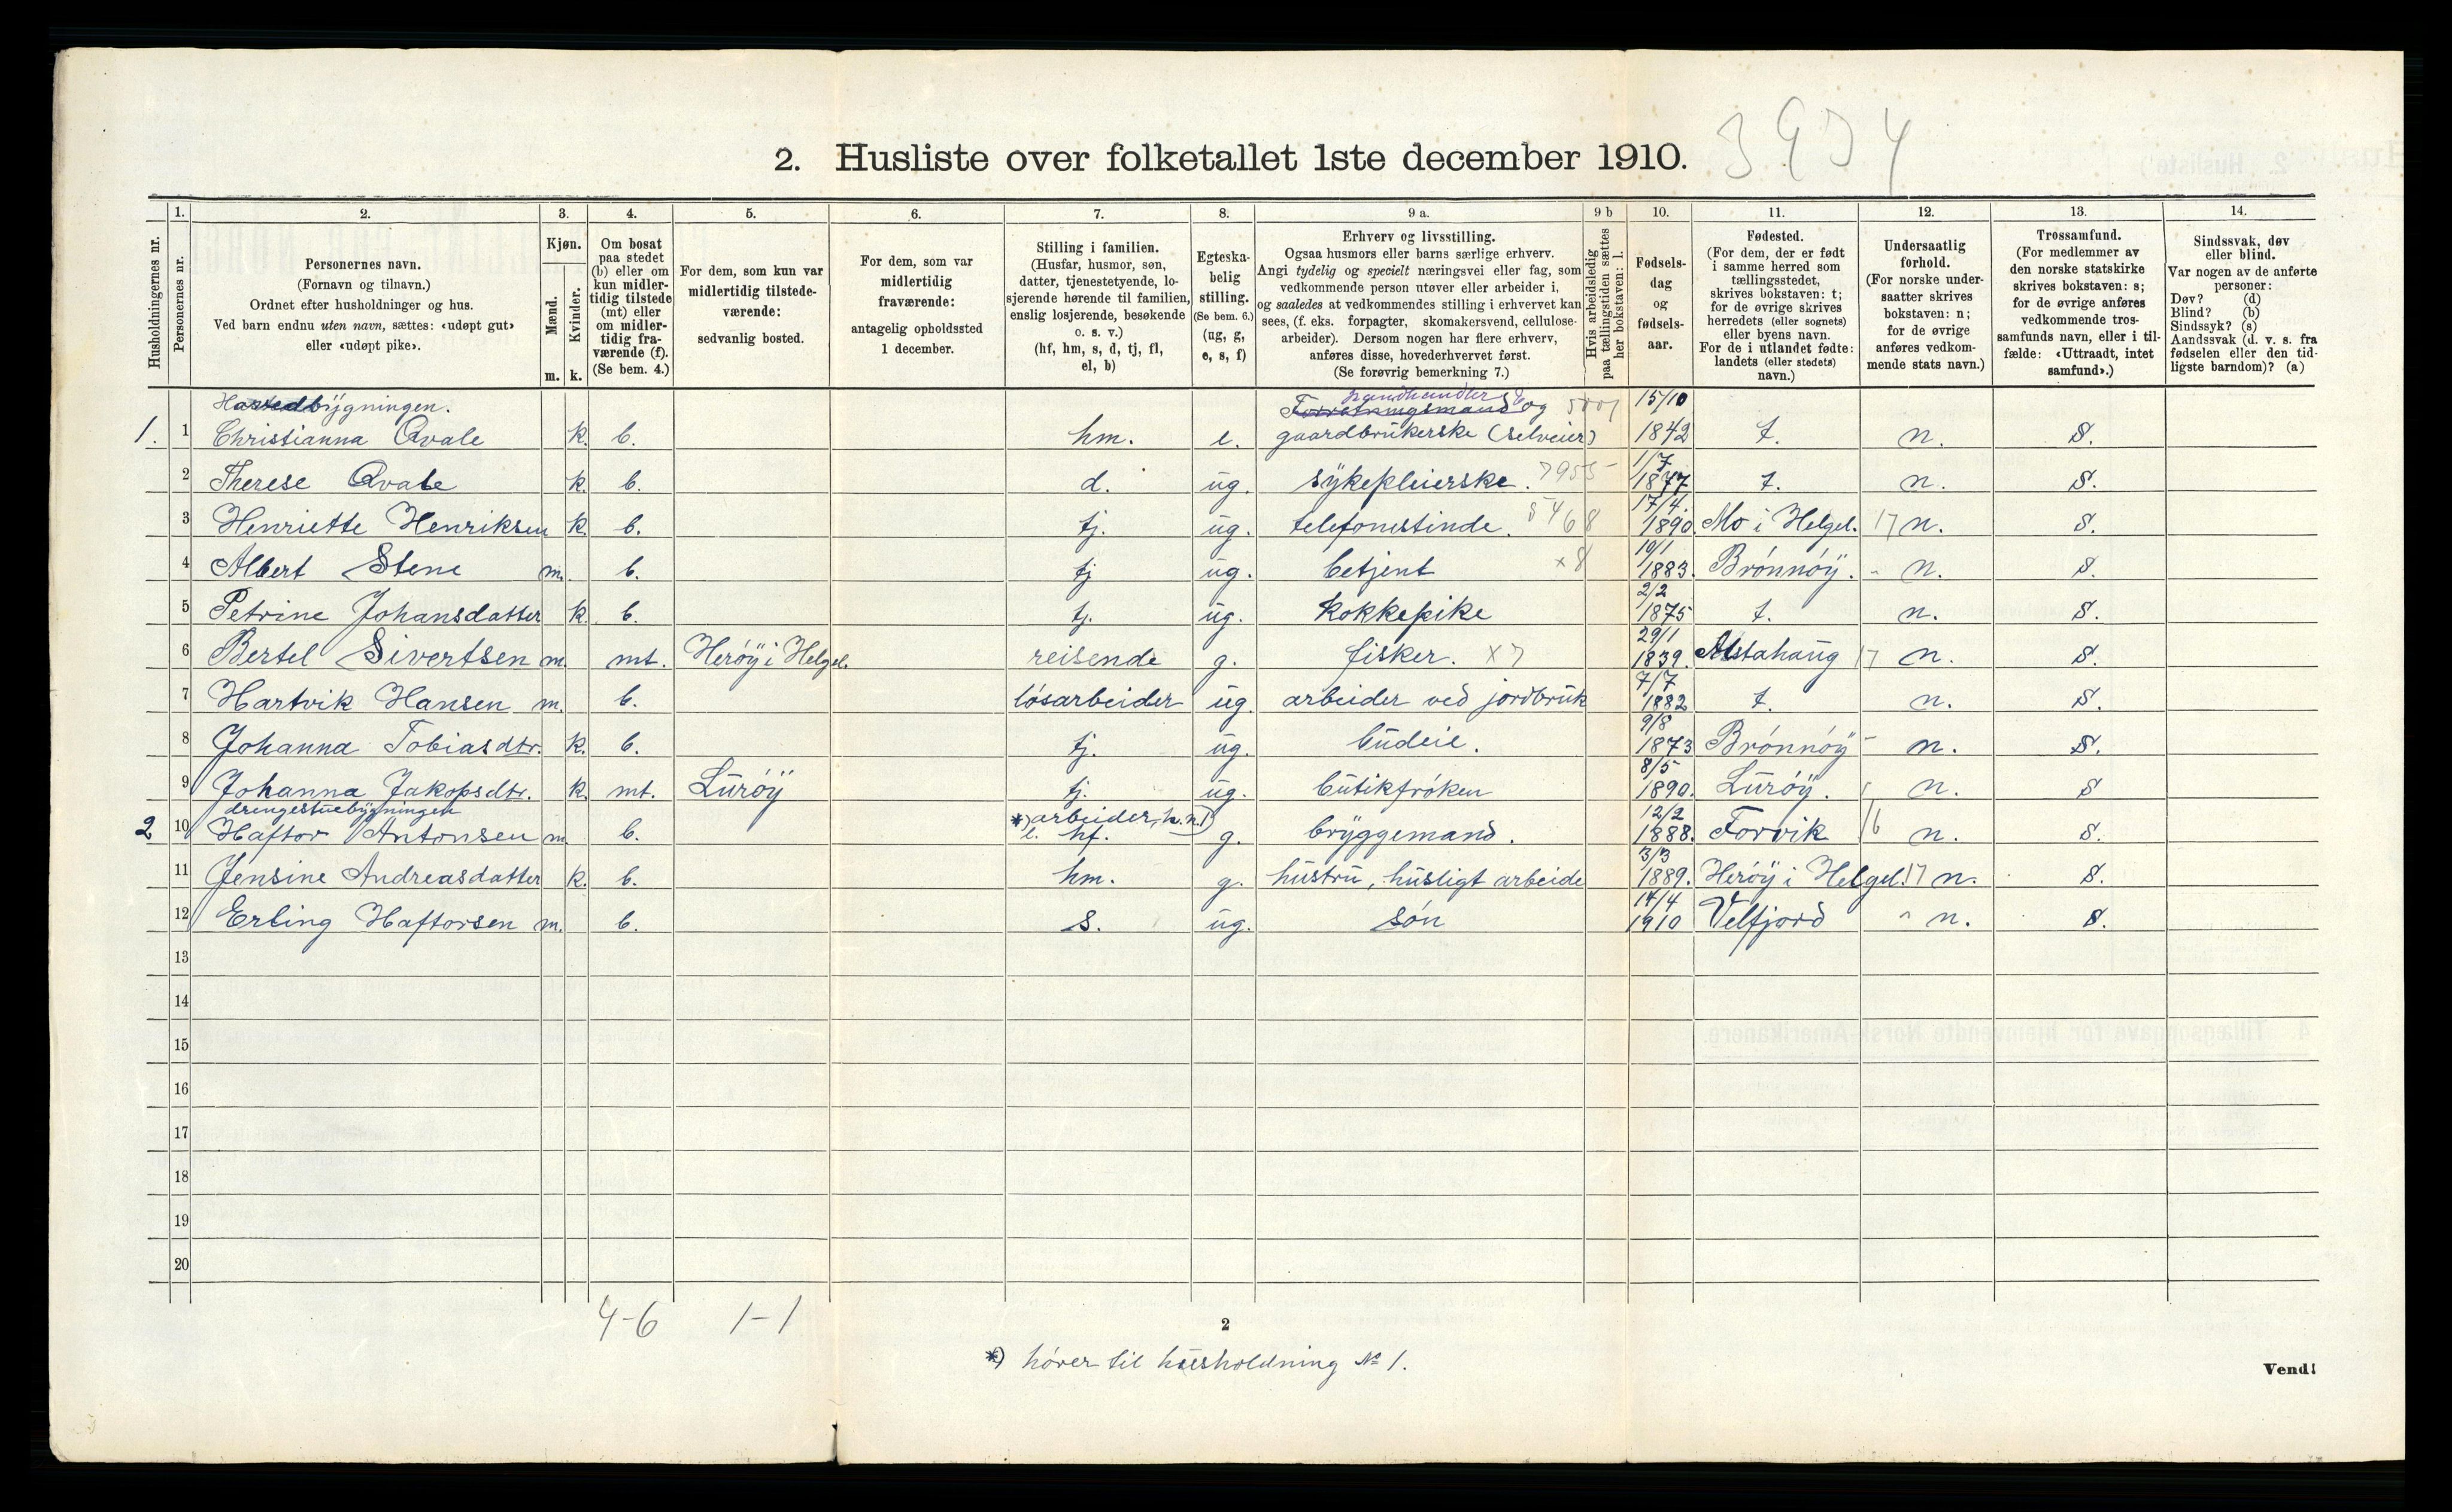 3934
2. Husliste over folketallet 1ste december 1910.
Husholdningernes nr.
1.
Personernes nr.
2.
Personernes navn.
(Fornavn og tilnavn.)
Ordnet efter husholdninger og hus.
Ved barn endnu uten navn, sættes: «udøpt gut»
eller «udøpt pike».
3.
Kjøn.
Mænd.
Kvinder.
m. k.
4.
Om bosat
paa stedet
(b) eller om
kun midler-
tidig tilstede
(mt) eller
om midler-
tidig fra-
værende (f).
(Se bem. 4.)
5.
For dem, som kun var
midlertidig tilstede-
værende:
sedvanlig bosted.
6.
For dem, som var
midlertidig
fraværende:
antagelig opholdssted
1 december.
7.
Stilling i familien.
(Husfar, husmor, søn,
datter, tjenestetyende, lo-
sjerende hørende til familien,
enslig losjerende, besøkende
o. s. v.)
(hf, hm, s, d, tj, fl,
el, b)
8.
Egteska-
belig
stilling.
(Se bem. 6.)
(ug, g,
e, s, f)
9 a.
Erhverv og livsstilling.
Ogsaa husmors eller barns særlige erhverv.
Angi tydelig og specielt næringsvei eller fag, som
vedkommende person utøver eller arbeider i,
og saaledes at vedkommendes stilling i erhvervet kan
sees, (f. eks. forpagter, skomakersvend, cellulose-
arbeider). Dersom nogen har flere erhverv,
anføres disse, hovederhvervet først.
(Se forøvrig bemerkning 7.)
9 b
Hvis arbeidsledig
paa tællingstiden sættes
her bokstaven: l.
10.
Fødsels-
dag
og
fødsels-
aar.
11.
Fødested.
(For dem, der er født
i samme herred som
tællingsstedet,
skrives bokstaven: t;
for de øvrige skrives
herredets (eller sognets)
eller byens navn.
For de i utlandet fødte:
landets (eller stedets)
navn.)
12.
Undersaatlig
forhold.
(For norske under-
saatter skrives
bokstaven: n;
for de øvrige
anføres vedkom-
mende stats navn.)
13.
Trossamfund.
(For medlemmer av
den norske statskirke
skrives bokstaven: s;
for de øvrige anføres
vedkommende tros-
samfunds navn, eller i til-
fælde: «Uttraadt, intet
samfund».)
14.
Sindssvak, døv
eller blind.
Var nogen av de anførte
personer:
Døv? (d)
Blind? (b)
Sindssyk? (s)
Aandssvak (d. v. s. fra
fødselen eller den tid-
ligste barndom)? (a)
landhandler
Forretningsmand og 15/10
1. 1 Christianna Qvale k. b. hm. e. gaardbrukerske (selveier) 1842 t. n. s.
2 Therese Qvale k. b. d. ug. sykepleierske. 7955 1/7 1877 t. n. s.
3 Henriette Henriksen k. b. tj. ug. telefonistinde. 5468 17/4. 1890. Mo i Helgel. 17 n. s.
4 Albert Stene m. b. tj ug. betjent x8 19/1 1883. Brønnøy. - n. s.
5 Petrine Johansdatter k. b. tj. ug. kokkepike 2/2 1875 t. n. s.
6 Bertel Sivertsen m. mt. Herøy i Helgel. reisende g. fisker. x7 29/1 1839. Alstahaug 17 n. s.
7 Hartvik Hansen m. b. løsarbeider ug. arbeider ved jordbruk 7/7 1882 t. n. s.
8 Johanna Tobiasdtr. k. b. tj. ug. budeie. 9/8 1873 Brønnøy - n. s.
9 Johanna Jakopsdtr. k. mt. Lurøy tj. ug. butikfrøken 8/5 1890. Lurøy. n. s
drengestuebygningen *) arbeider, h. n. 1)
2 10 Haftor Antonsen m. b. hf. g. bryggemand. 12/2 1888. Forvik 16 n. s.
11 Jensine Andreasdatter k. b. hm. g. hustru, husligt arbeide 3/3 1889. Herøy i Helgel. 17 n. s.
12 Erling Haftorsen m. b. s. ug. søn 14/4 1910 Velfjord n. s.
13
14
15
16
17
18
19
20
4-6 1-1
2
*) hører til husholdning № 1.
Vend!